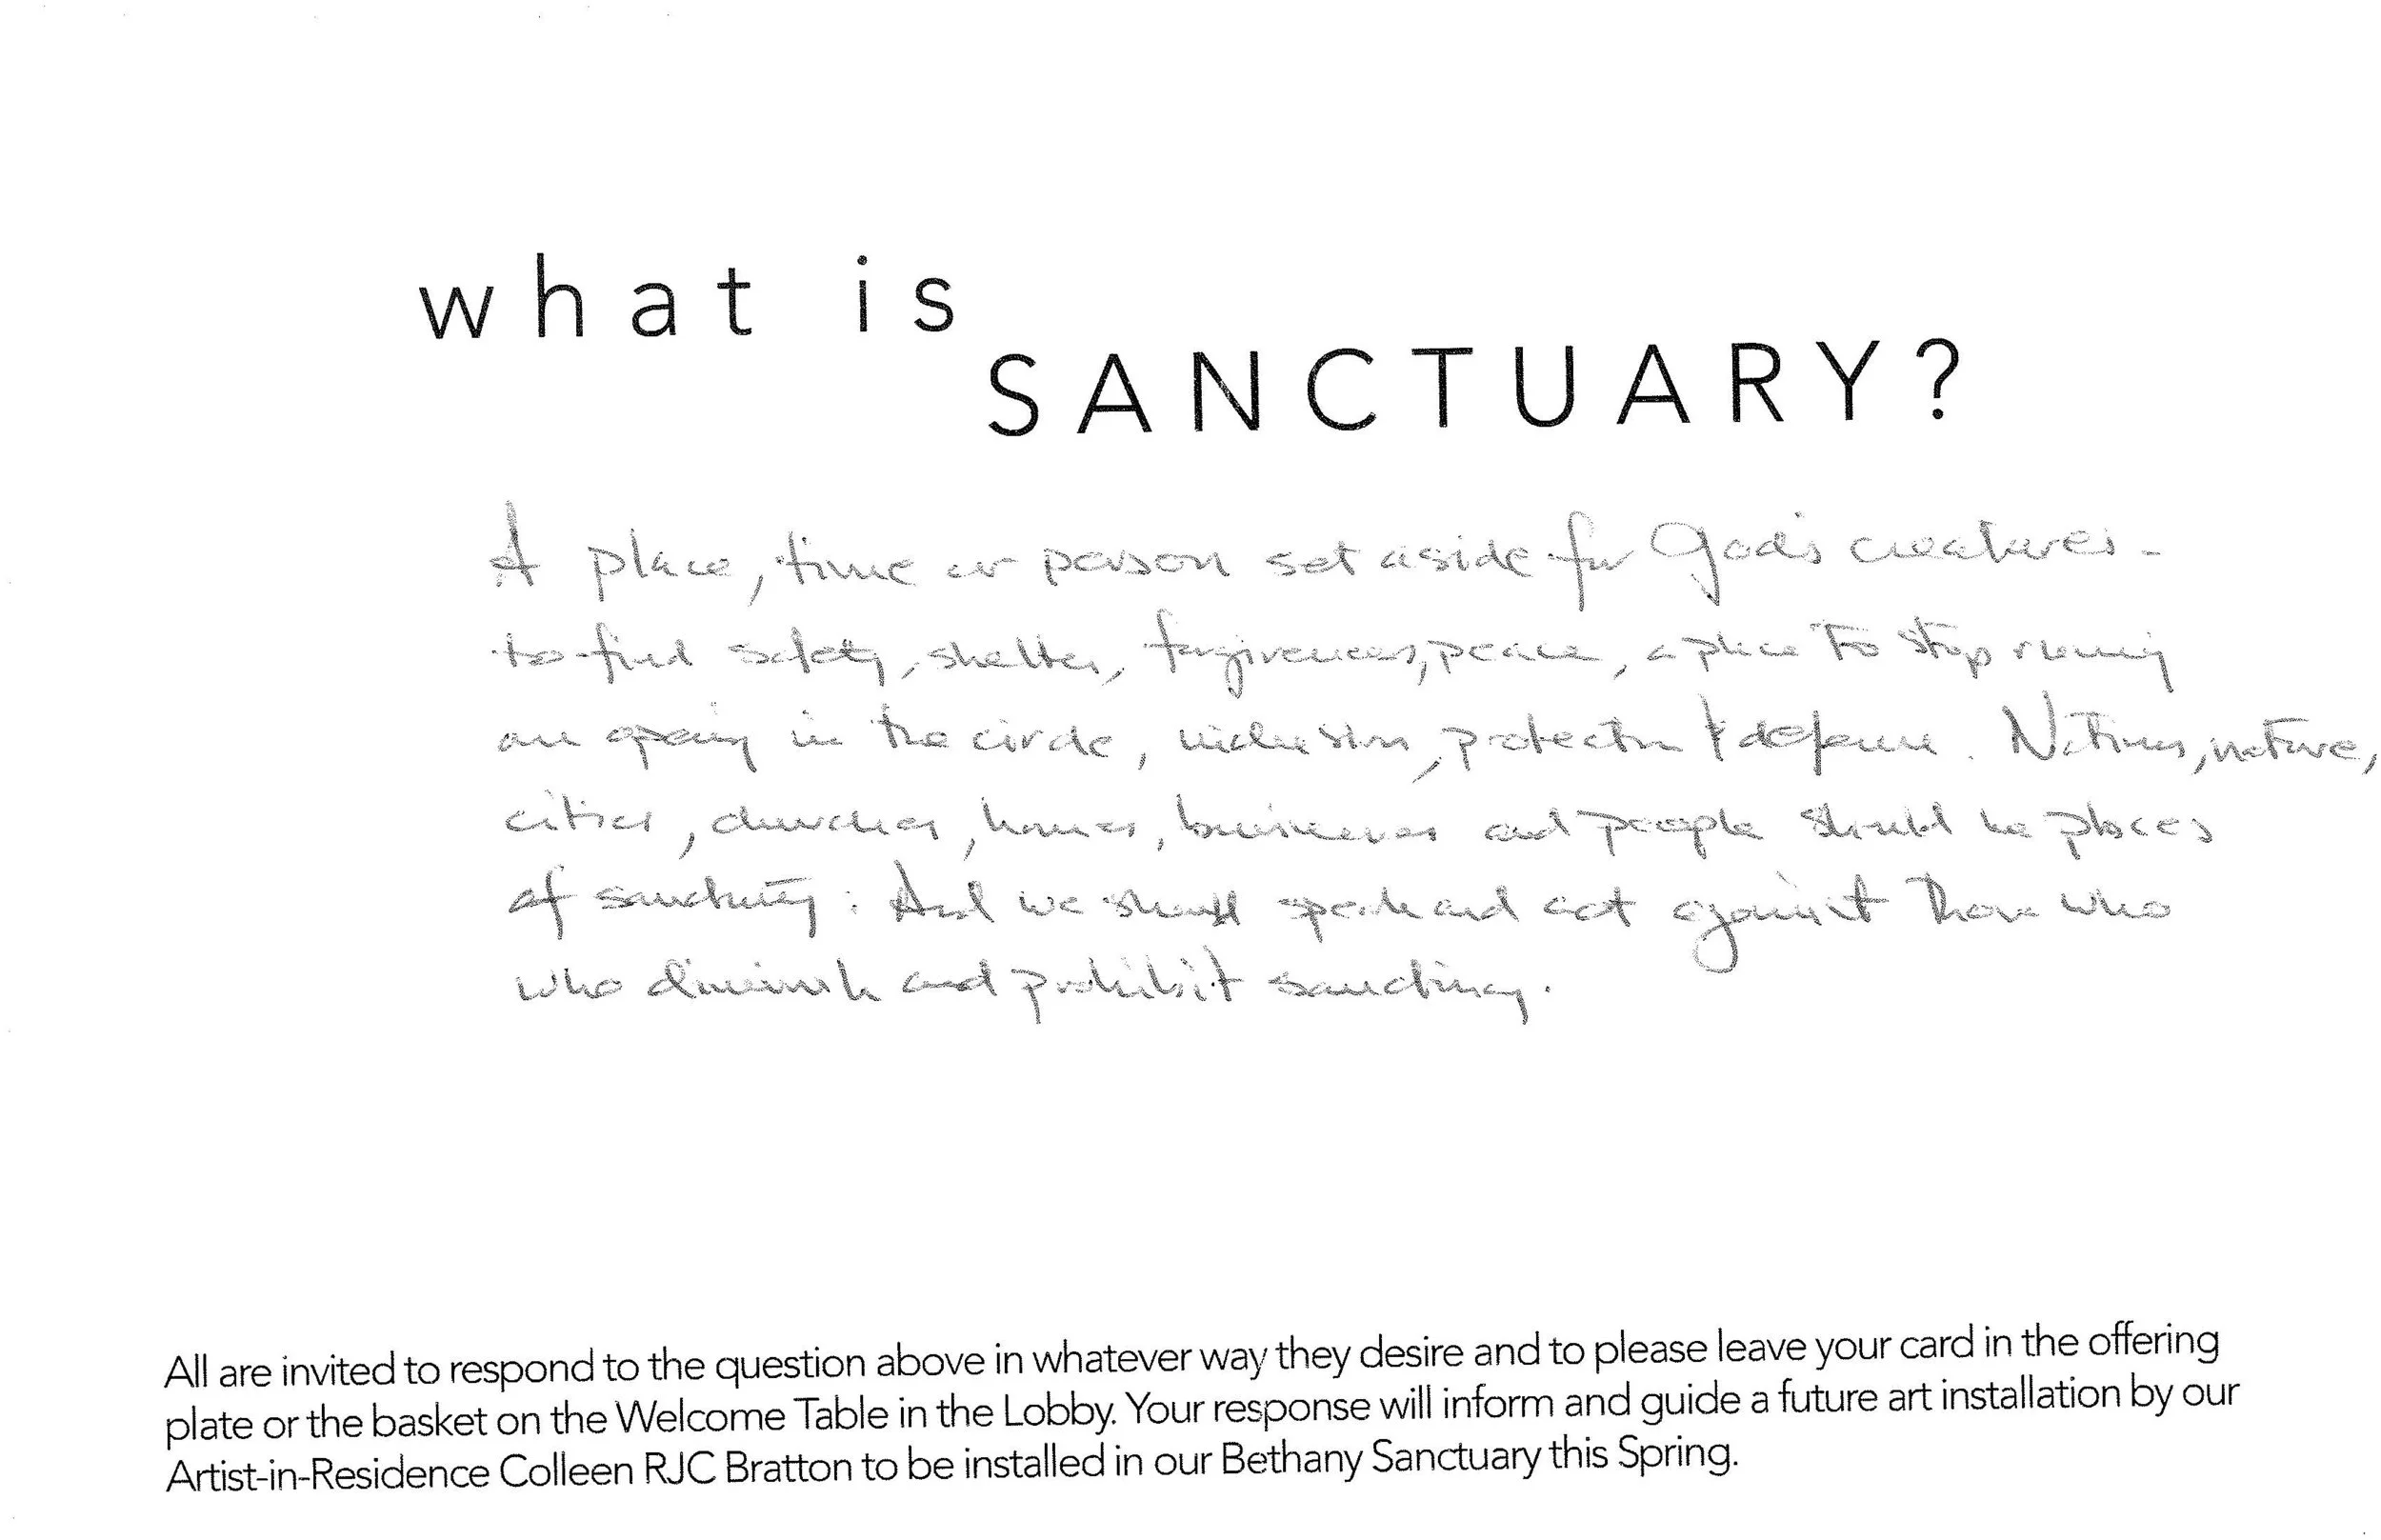 what is
SANCTUARY?
A place, time or person set aside for God's creatures -
to find safety, shelter, forgiveness, peace, a place to stop running
an opening in the circle, inclusion, protection & defense. Nations, nature,
cities, churches, homes, businesses and people should be places
of sanctuary. And we should speak and act against those who
who diminish and prohibit sanctuary.
All are invited to respond to the question above in whatever way they desire and to please leave your card in the offering
plate or the basket on the Welcome Table in the Lobby. Your response will inform and guide a future art installation by our
Artist-in-Residence Colleen RJC Bratton to be installed in our Bethany Sanctuary this Spring.